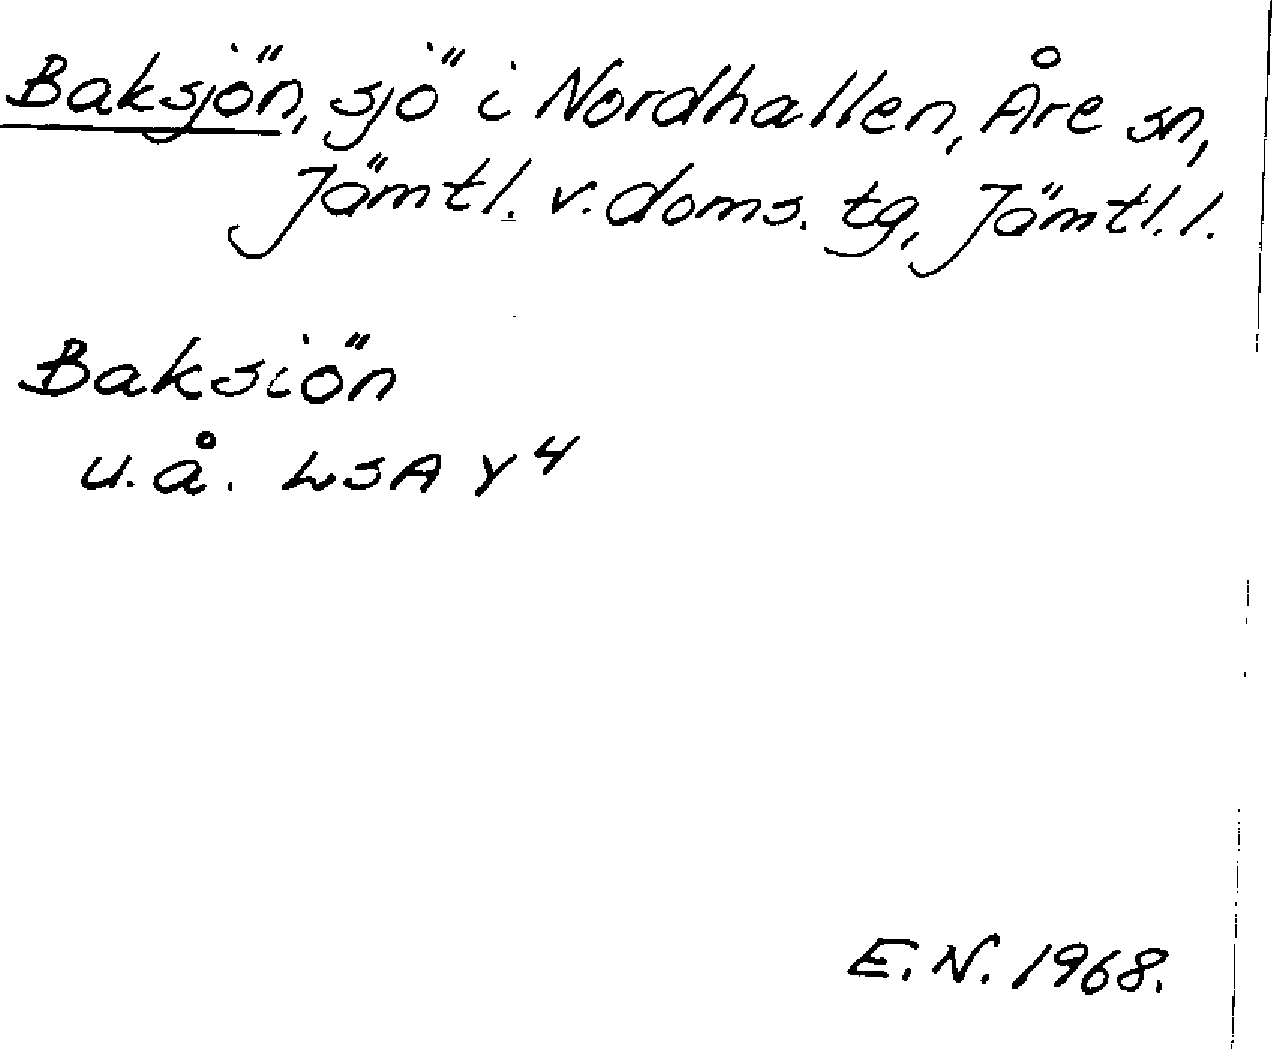 Baksjön, sjö i Nordhallen, Åre sn,
Jämtl. v. doms. tg, Jämtl. l.
Baksiön
u.å. LSA Y4
E.N. 1968.